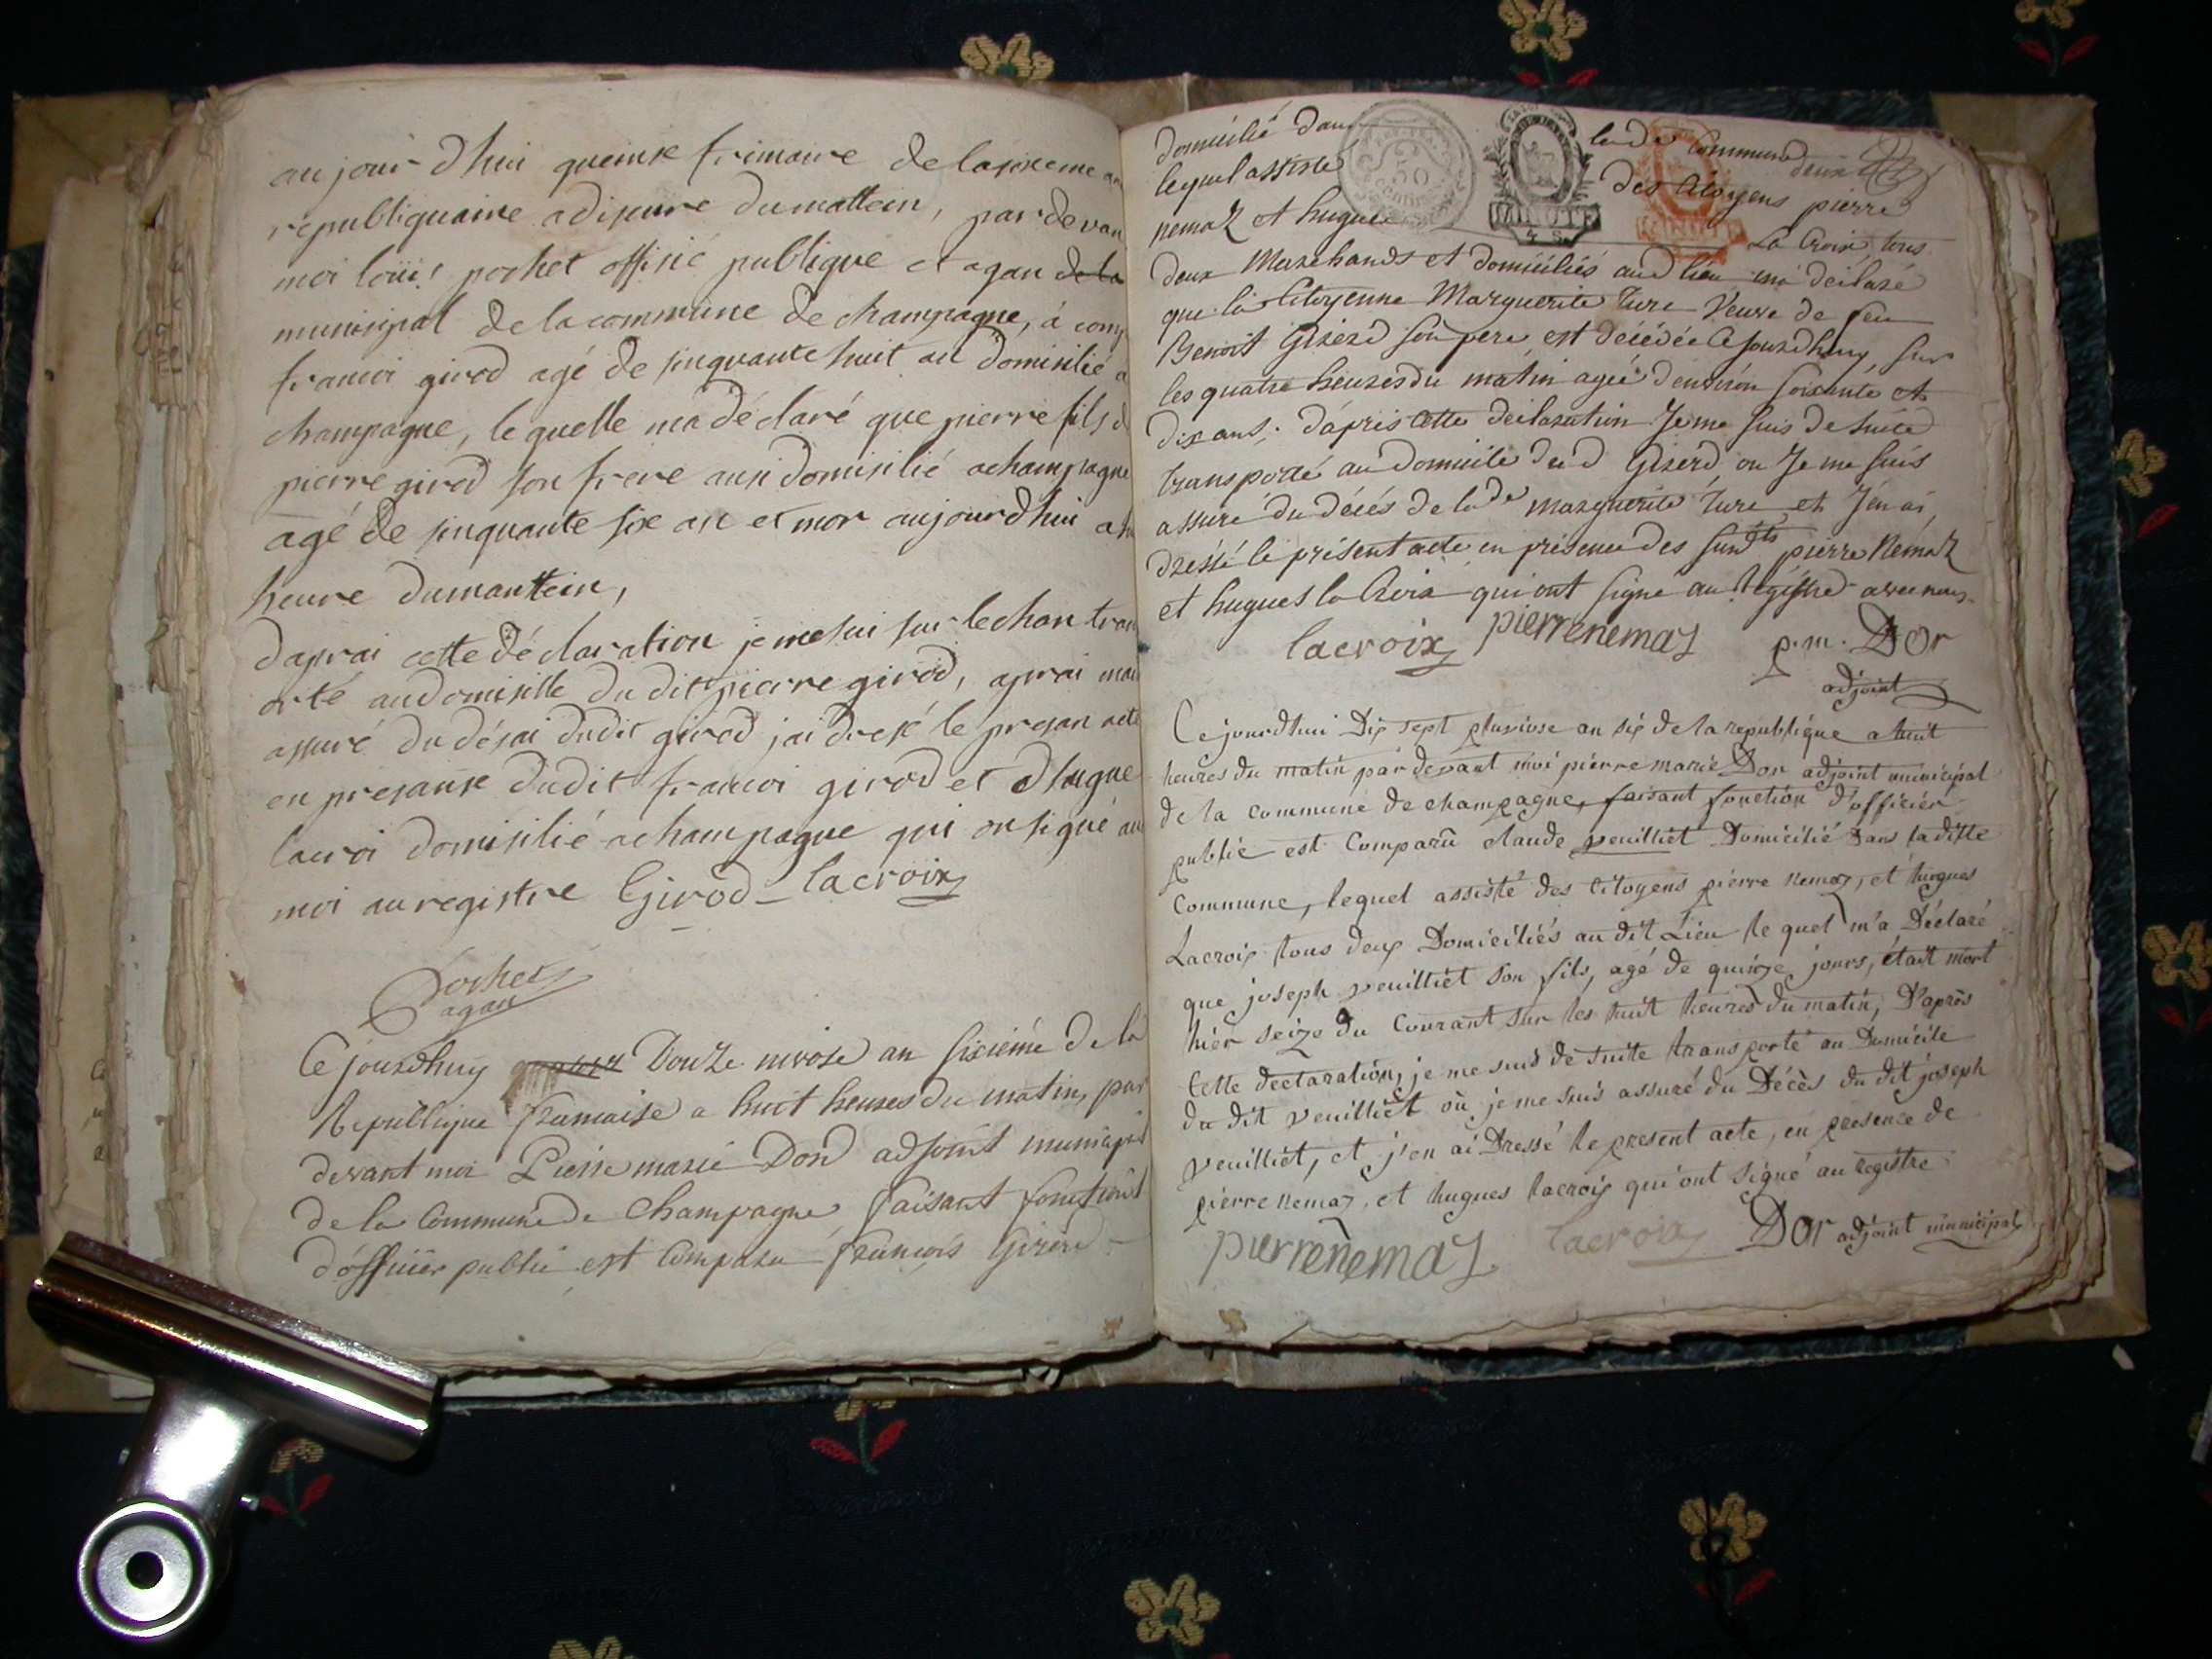 aujour dhui queinse frimaire de lasixeme an
republiquaine adiseure dumattein, pardevan
moi louis pochet offisié publique et agan de la
munisipal de lacommune de champagne, à comp
francoi girod agé de sinquante huit an domisilié a
champagne, le quelle ma déclaré que pierre fils d
pierre girod son frere ausi domisilié achampagne
agé de sinquante six an et mor aujourdhui a
heure dumanttein,
daprai cette déclaration jemesui sur lechan tran
orté audomisille dudit pierre girod, aprai mai
assuré du désai dudit girod jai dresé le presan acte
en presanse dudit francoi girod et dhugue
lacroi domisilié achampagne qui onsigné au
moi auregistre Girod lacroix
Pochet
agan
Cejourdhuy Douze nivose an sixiéme de la
Republique francaise a huit heures du matin, par
devant moi Pierre marie Dord adjoint municipal
de la Commune de Champagne faisant fonctions
d'officier public est Comparu françois Girerd
domicilié dans lade Commune
lequel assisté des Citoyens pierre
nemoz et hugues La Croix, tous
deux Marchands et domiciliés aud lieu, m'a déclaré
que la Citoyenne Marguerite Ture Veuve de feu
Benoit Girerd son pere est décédée Cejourdhuy sur
les quatre heures du matin agée d'environ soixante et
dix ans; d'après cette déclaration Je me suis de suite
transporté au domicile dud Girerd ou Je me suis
assuré du décés de lade marguerite Ture et J'en ai,
dressé le présent acte en présence des susdts pierre Némoz
et hugues la Croix qui ont signé au Registre avec nous
lacroix pierre nemoz p.m. Dor
adjoint
Cejourdhui Dix sept pluviose an six de la republique a huit
heures du matin par devant moi pierre marie Dor adjoint municipal
de la commune de champagne, faisant fonction d'officier
public est Comparû claude veuilliet Domicilié Dans la ditte
Commune, lequel assisté des Citoyens pierre nemoz, et hugues
Lacroix tous deux Domiciliés au dit Lieu le quel m'a Déclaré
que joseph veuilliet son fils, agé de quinze jours, était mort
hièr seize du Courant sur les huit heures du matin, D'après
Cette declaration, je me suis de suite transporté au Domicile
du dit veuilliet où je me suis assuré du Décès du dit joseph
veuilliet, et j'en ai Dressé le present acte, en presence de
pierre nemoz, et hugues lacroix qui ont signé au registre
pierre nemoz lacroix Dor adjoint municipal